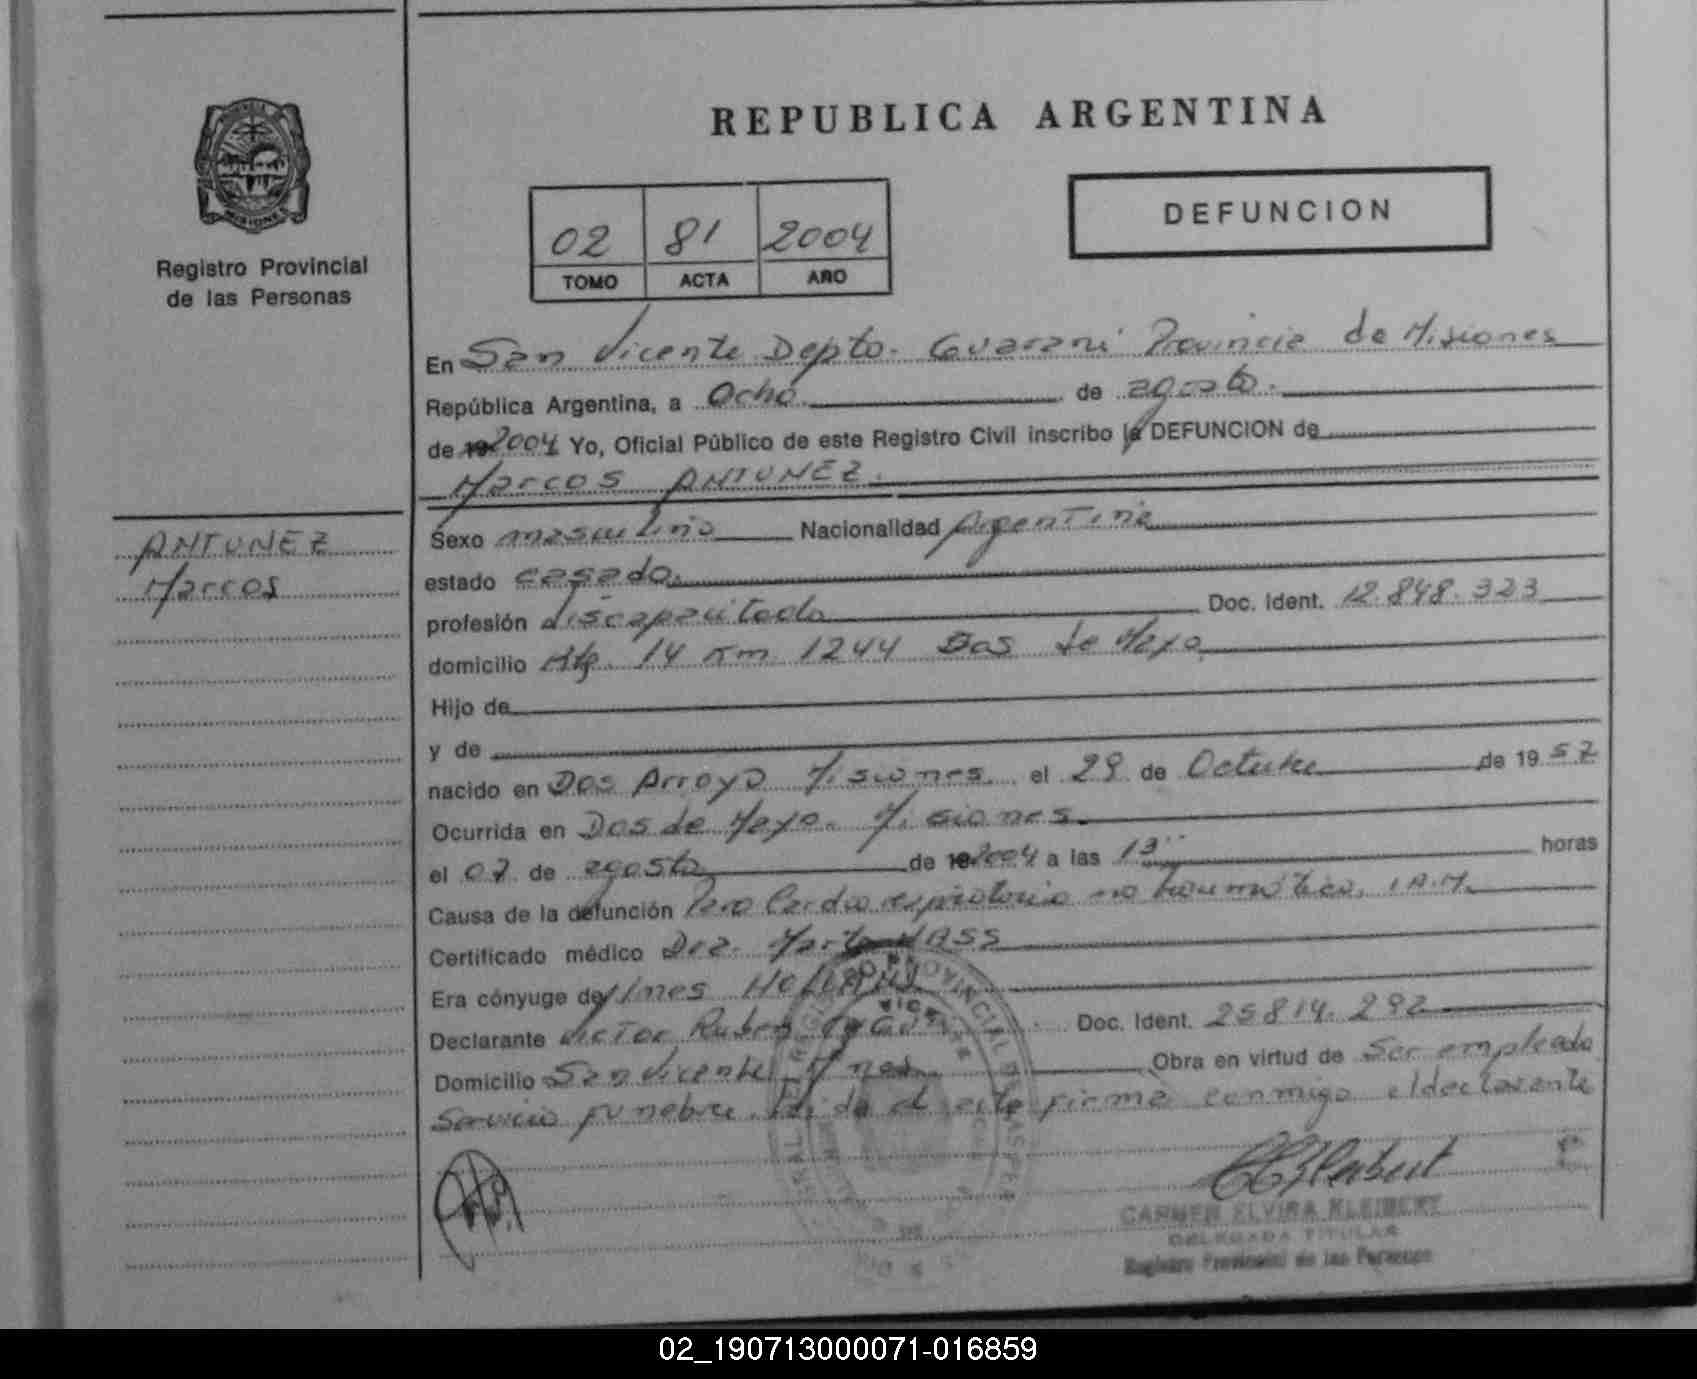 REPUBLICA ARGENTINA
MISIONES
Registro Provincial
de las Personas
02 81 2004
TOMO ACTA AÑO
DEFUNCION
ANTUNEZ
Marcos
En San Vicente Depto. Guarani Provincia de Misiones
República Argentina, a Ocho de agosto.
de 2004 Yo, Oficial Público de este Registro Civil inscribo la DEFUNCION de
Marcos ANTUNEZ.
Sexo masculino Nacionalidad Argentina
estado casado.
profesión discapacitado Doc. Ident. 12.848.323
domicilio 14 Km 1244 Dos de Mayo
Hijo de
y de
nacido en Dos Arroyo Misiones. el 29 de Octubre de 1957
Ocurrida en Dos de Mayo. Misiones.
el 07 de agosto de 2004 a las 13 horas
Causa de la defunción Paro Cardio respiratorio no traumático. I.A.M.
Certificado médico Dra. Marta HASS
Era cónyuge de Ines
Declarante Victor Ruben Doc. Ident. 25814.292
Domicilio San Vicente Obra en virtud de Ser empleado
Servicio funebre. Leida el acta firma conmigo el declarante
CARMEN ELVIRA KLEIBERT
DELEGADA TITULAR
Registro Provincial de las Personas
02_190713000071-016859